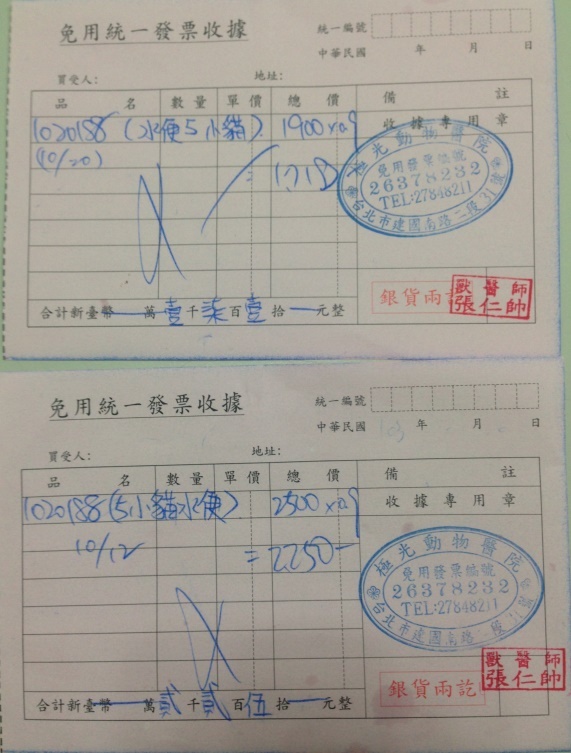 免用統一發票收據
統一編號
中華民國 年 月 日
買受人: 地址:
品 名 數量 單價 總價 備 註
1020188 (水便5小貓) 1900x0.9 收據專用章
(10/20) = 1710
極光動物醫院
免用發票編號
26378232
TEL:27848211
台北市建國南路二段31號
銀貨兩
獸醫師
張仁帥
合計新臺幣 萬壹千柒百壹拾 元整
免用統一發票收據
統一編號
中華民國 年 月 日
買受人: 地址:
品 名 數量 單價 總價 備 註
1020188 (5小貓水便) 2500x0.9 收據專用章
10/12 = 2250-
極光動物醫院
免用發票編號
26378232
TEL:27848211
台北市建國南路二段
銀貨兩訖
獸醫師
張仁帥
合計新臺幣 萬貳千貳百伍拾 元整